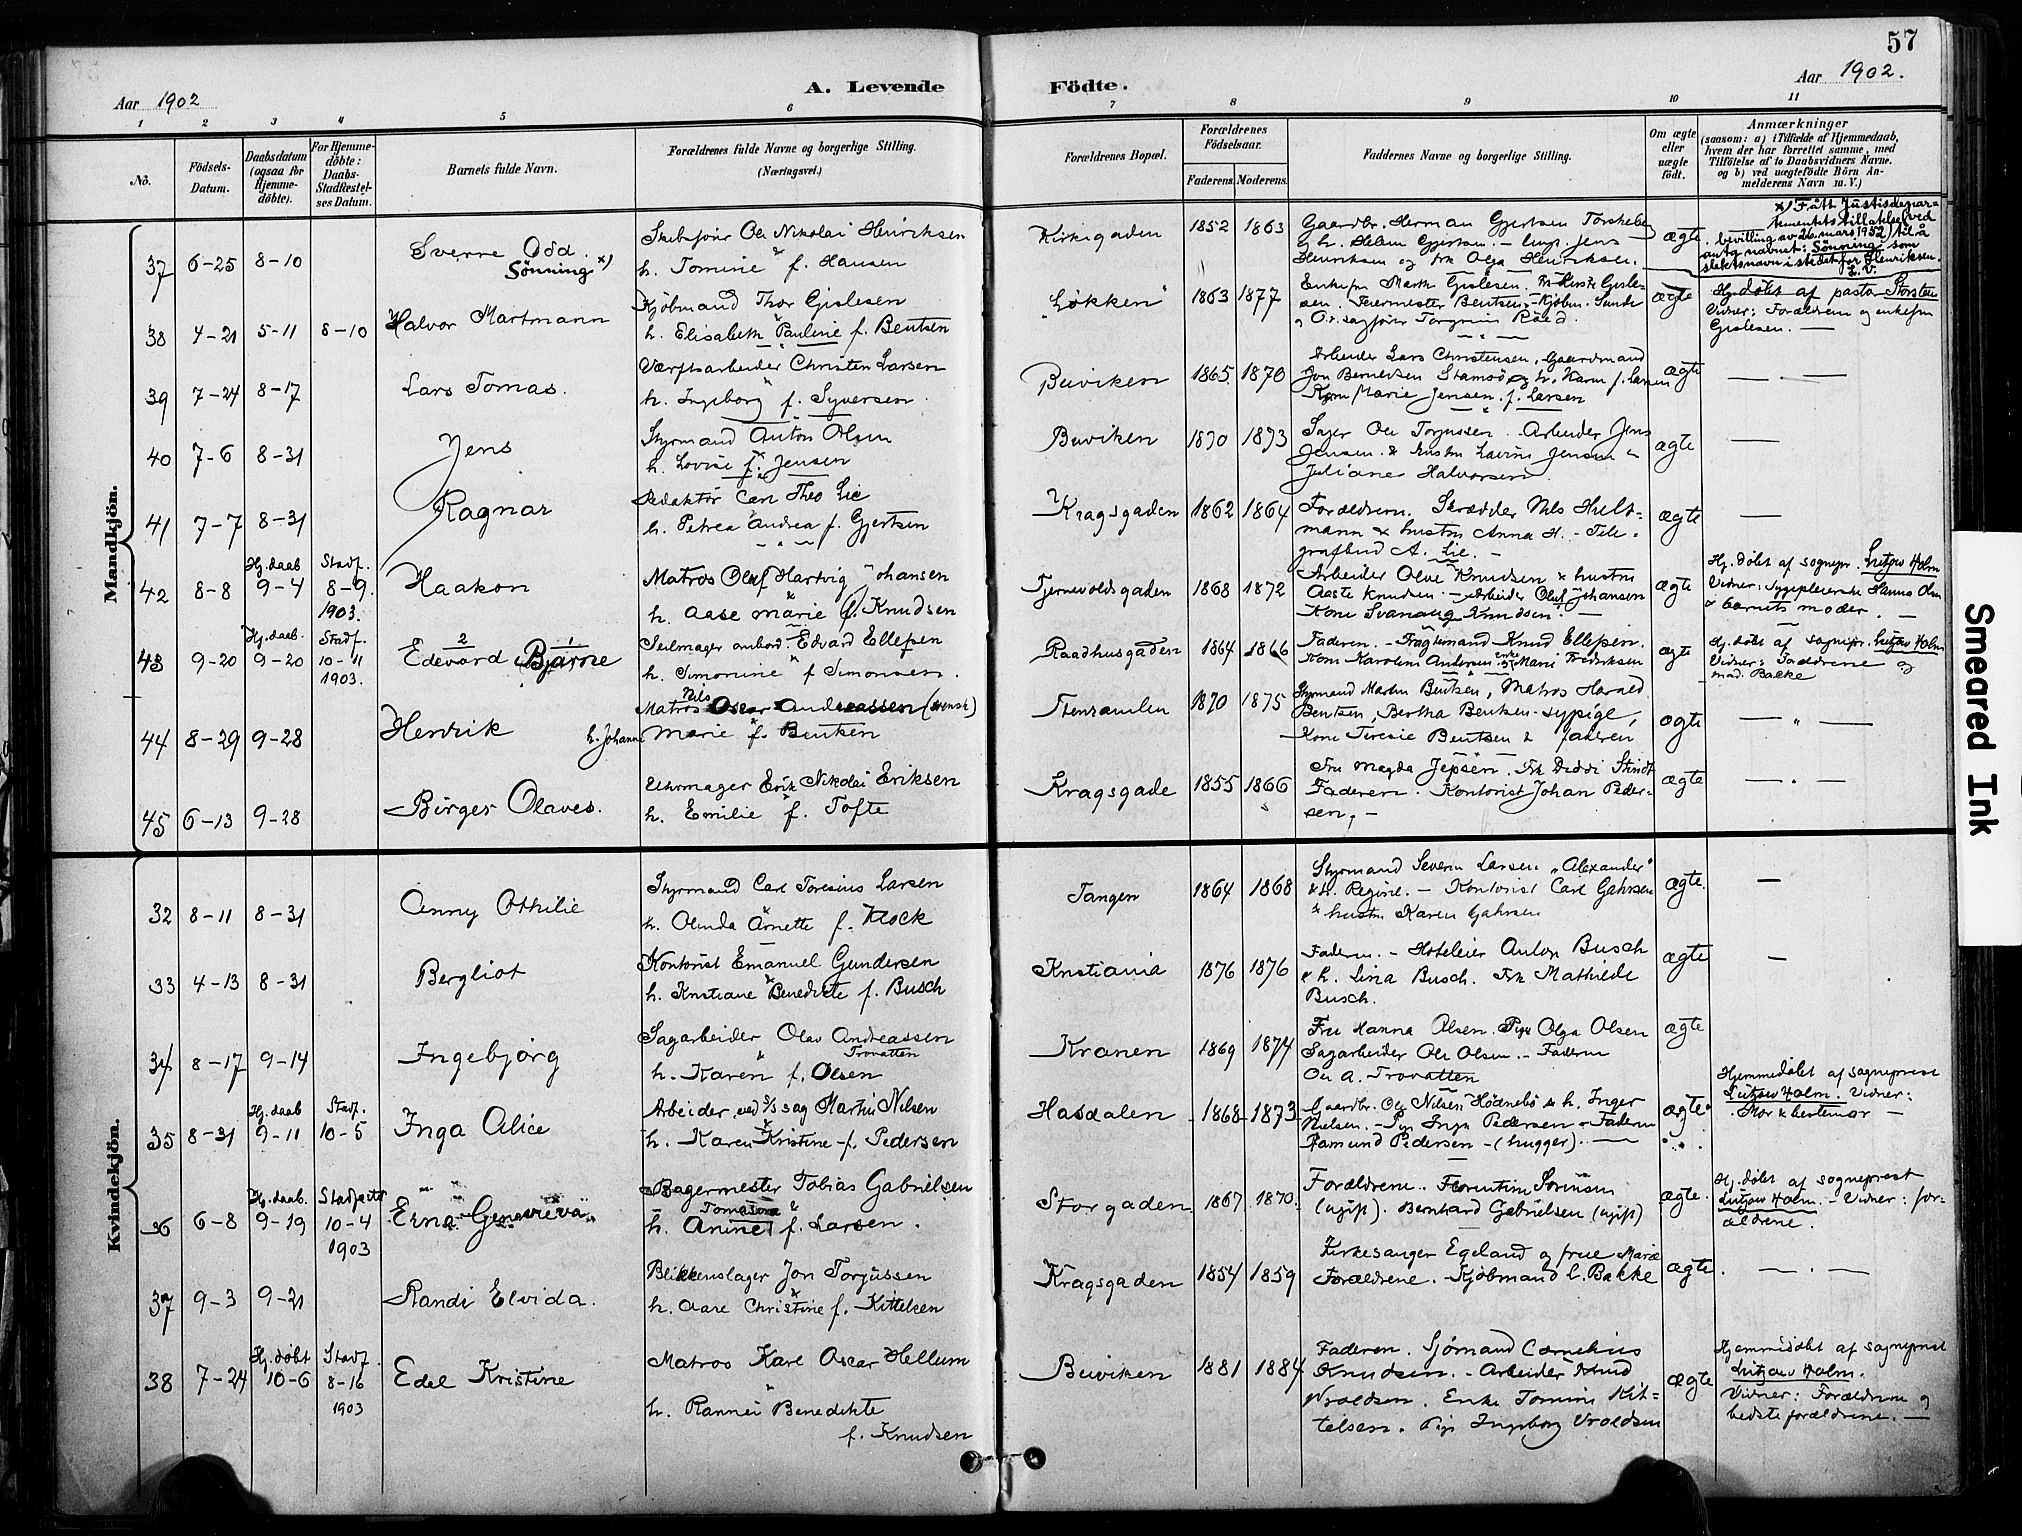 57
Aar 1902
A. Levende
Födte.
Aar 1902.
1 2 3 4 5 6 7 8 9 10 11
No.
Födsels-Datum.
Daabsdatum (ogsaa for Hjemmedöbte).
For Hjemmedöbte: Daabs-Stadfæstelses Datum.
Barnets fulde Navn.
Forældrenes fulde Navne og borgerlige Stilling.
(Næringsvei.)
Forældrenes Bopæl.
Forældrenes Födselsaar.
Faderens. Moderens.
Faddernes Navne og borgerlige Stilling.
Om ægte eller uægte födt.
Anmærkninger
(saasom: a) i Tilfælde af Hjemmedaab, hvem der har forrettet samme, med Tilföielse af to Daabsvidners Navne. og b) ved uægtefödte Börn Anmelderens Navn m. V.)
Mandkjön.
37 6-25 8-10 Sverre Odd.
Sönning x)
Skibsfører Ole Nikolai Henriksen
h. Tomine f. Hansen
Kirkegaden 1852 1863
Gaardbr. Herman Gjertsen Torskeberg
h. Helene Gjertsen. - Ungk. Jens
Henriksen og frk Olga Henriksen.
ægte
x) Fått Justisdepartementets tillatelse (ved
bevilling av 26. mars 1952) til å
anta navnet: Sönning som
slektsnavn i stedet for Henriksen.
L.V.
38 4-21 5-11 8-10 Halvor Martmann
Kjöbmand Thor Gislesen
h. Elisabeth Pauline f. Bentsen
"Løkken" 1863 1877
Enkefru Marth Gislesen.
ægte
Hj. döbt af pastor Storsteen
Vidner: Forældrene og enkefru
Gislesen. -
39 7-24 8-17 Lars Tomas.
Værftsarbeider Christen Larsen
h. Ingeborg f. Syversen.
Buviken 1865. 1870
Arbeider Lars Christensen, Gaardmand
Jon Berntsen Stamsö og h. Karen f. Larsen
Marie Jensen. f. Larsen
ægte
40 7-6 8-31 Jens
Styrmand Anton Olsen
h. Lovise f. Jensen
Buviken 1870 1873
Ole Torjussen. Arbeider Jens
Jensen. & hustru Lavine Jensen &
Juliane Halvorsen.
ægte
41 7-7 8-31 Ragnar
Redaktör Carl Theo Lie
h. Petrea Andrea f. Gjertsen
Kragsgaden 1862 1864
Forældrene. Skrædder Nils Hultmann & hustru Anna H. - Telegrafbud A. Lie. -
ægte
42 8-8 Hj. daab 9-4 Stadf. 8-9 1903. Haakon
Matros Oluf Hartvig Johansen
h. Aase Marie f. Knudsen
Tjernevoldsgaden 1868 1872
Arbeider Olve Knudsen & hustru
Aaste Knudsen - Arbeider Oluf Johansen
Kone Svanaug Knudsen. -
ægte
Hj. döbt af sognepr. Lutzow Holm
Vidner: Sygepleierske Hanna Olsen
& barnets moder.
43 9-20 Hj. daab. 9-20 Stadf. 10-11 1903. Edevard 2 Bjarne 1
Seilmager ombord. Edvard Ellefsen
h. Simonine f Simonsen.
Raadhusgaden 1864 1866
Faderen. - Fragtemand Knud Ellefsen.
Kone Karoline Andersen. enke Marie Fredriksen
ægte
Hj. döbt af sognepr. Lutzow Holm
Vidner: Forældrene og
mad. Bakke
44 8-29 9-28 Henrik
Matros Nils Oscar Andreassen (svensk)
h. Johanne Marie f. Bentsen
Stenramlen 1870 1875
Styrmand Martin Bentsen, Matros Harald
Bentsen, Bertha Bentsen sypige,
Kone Teresie Bentsen & faderen
ægte
45 6-13 9-28 Birger Olaves.
Uhrmager Erik Nikolai Eriksen
h. Emilie f. Tofte
Kragsgade 1855 1866
Fru Magda Jepsen. Frk Diddi
Faderen. Kontorist Johan Pedersen. -
ægte
Kvindekjön.
32 8-11 8-31 Anny Othilie
Styrmand Carl Toresius Larsen
h. Olinda Arnette f. Klock
Tangen 1864 1868
Styrmand Severin Larsen "Alexander"
& h. Regine. - Kontorist Carl Gahrsen
& hustru Karen Gahrsen
ægte.
33 4-13 8-31 Bergliot
Kontorist Emanuel Gundersen
h. Kristiane Benedicte f. Busch
Kristiania 1876 1876
Faderen. - Hoteleier Anton Busch
& h. Lina Busch. Frk Mathilde
Busch.
ægte
34 8-17 9-14 Ingebjørg
Sagarbeider Olav Andreassen
Trovatten
h. Karen f. Olsen
Kranen 1869 1874
Fru Hanna Olsen. Pige Olga Olsen
Sagarbeider Ole Olsen. - Faderen
Ole A. Trovatten
ægte
35 8-31 Hj. daab 9-11 Stadf. 10-5 Inga Alice
Arbeider ved sag Martin Nilsen
h. Karen Kristine f. Pedersen
Hasdalen 1868 1873
Gaardbr. Ole Nilsen Hödnebö & h. Inger
Nielsen. - Pige Inga Pedersen - Faderen
Rasmund Pedersen - (hugger). -
ægte
Hjemmedöbt af sogneprest
Lutzow Holm. Vidner:
Mor & bestemor -
36 6-8 Hj. daab. 9-19 Stadfæstet 10-4 1903 Erna Genoveva
Bagermester Tobias Gabrielsen
Tomasine
h. Anine f. Larsen.
Storgaden 1867 1870.
Forældrene. Florentine Sörensen
(ugift). Bernhard Gabrielsen (ugift)
ægte.
Hj. döbt af sogneprest
Lutzow Holm. - Vidner: forældrene.
37 9-3 9-21 Randi Elvida.
Blikkenslager Jon Torjussen
h. Aase Christine f. Kittelsen
Kragsgaden 1854 1859
Kirkesanger Egeland og frue Marie
Forældrene. - Kjöbmand L. Bakke
ægte.
38 7-24 Hj. döbt 10-6 Stadf. 8-16 1903 Edel Kristine
Matros Karl Oscar Hellum
h. Rannei Benedikte
f. Knudsen
Buviken 1881 1884
Faderen. Sjömand Cornelius
Knudsen. - Arbeider Knud
Vroldsen. Enke Tomine Kittelsen. Pige Ingeborg Vroldsen
ægte
Hjemmedöbt af sogneprest
Lutzow Holm.
Vidner: Forældrene og
bedsteforældrene. -
Smeared Ink